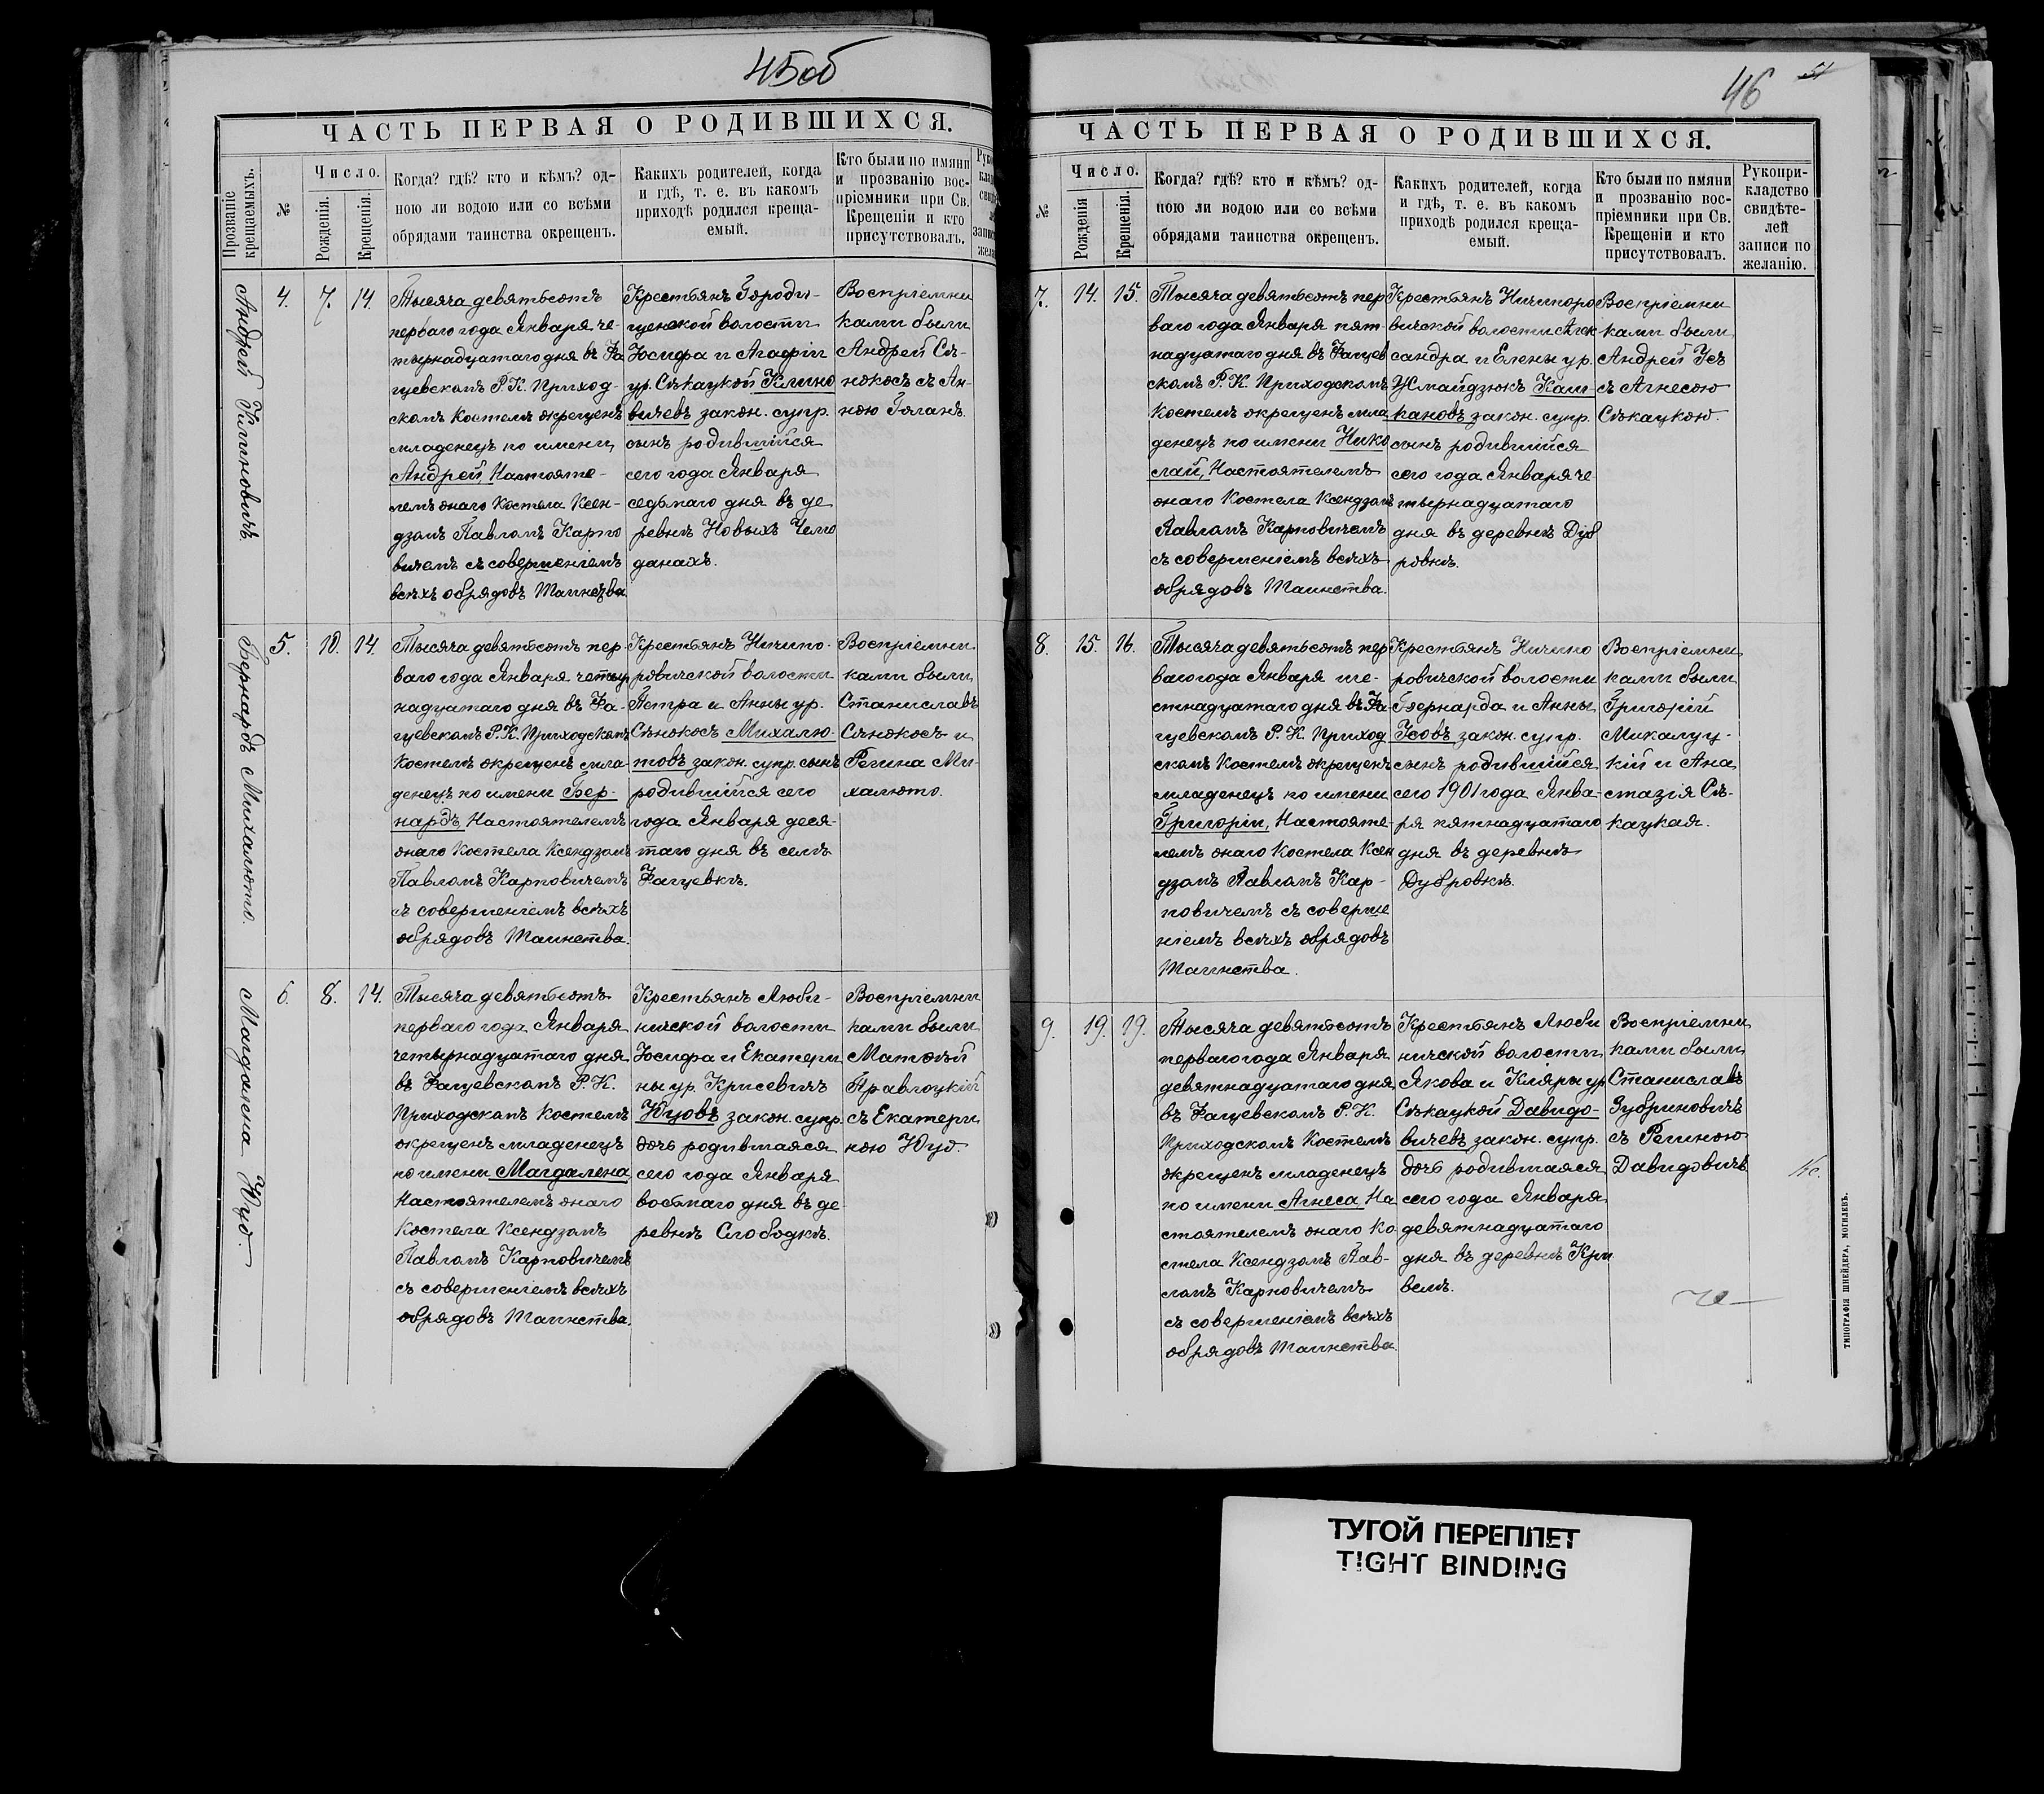 45об
ЧАСТЬ ПЕРВАЯ О РОДИВШИХСЯ.
Прозваніе крещаемыхъ.
№
Число.
Рожденія.
Крещенія.
Когда? гдѣ? кто и кѣмъ? од-
ною ли водою или со всѣми
обрядами таинства окрещенъ.
Какихъ родителей, когда
и гдѣ, т. е. въ какомъ
приходѣ родился креща-
емый.
Кто были по имяни
и прозванію вос-
пріемники при Св.
Крещеніи и кто
присутствовалъ.
Андрей Климовичъ.
4.
7.
14.
Тысяча девятьсотъ
перваго года Января че-
тырнадцатаго дня въ Фа
щевскомъ Р. К. Приход-
скомъ Костелѣ окрещенъ
младенецъ по имени
Андрей, Настояте-
лемъ онаго Костела Ксен-
дзомъ Павломъ Карпо
вичемъ съ совершеніемъ
всѣхъ обрядовъ Таинства
Крестьянъ Городи-
щенской волости
Іосифа и Агафіи
ур. Сѣкацкой Климо
вичевъ закон. супр.
сынъ родившійся
сего года Января
седьмаго дня въ де
ревнѣ Новыхъ Чемо
данахъ.
Воспріемни
ками были
Андрей Сѣ-
нокосъ съ Ан-
ною Голанъ.
Бернардъ Михалюто.
5.
10.
14.
Тысяча девятьсотъ пер-
ваго года Января четыр
надцатаго дня въ Фа-
щевскомъ Р. К. Приходскомъ
Костелѣ окрещенъ мла-
денецъ по имени Бер-
нардъ, Настоятелемъ
онаго Костела Ксендзомъ
Павломъ Карповичемъ
съ совершеніемъ всѣхъ
обрядовъ Таинства.
Крестьянъ Ничипо-
ровичской волости
Петра и Анны ур.
Сѣнокосъ Михалю-
товъ закон. супр. сынъ
родившійся сего
года Января деся-
таго дня въ селѣ
Фащевкѣ.
Воспріемни
ками были
Станиславъ
Сѣнокосъ и
Регина Ми-
халюто.
Магдалена Юцо.
6.
8.
14.
Тысяча девятьсотъ
перваго года Января
четырнадцатаго дня
въ Фащевскомъ Р. К.
Приходскомъ Костелѣ
окрещенъ младенецъ
по имени Магдалена
Настоятелемъ онаго
Костела Ксендзомъ
Павломъ Карповичемъ
съ совершеніемъ всѣхъ
обрядовъ Таинства.
Крестьянъ Люби-
ничской волости
Іосифа и Екатери
ны ур. Крисевичъ
Юцовъ закон. супр.
дочь родившаяся
сего года Января
восьмаго дня въ де
ревнѣ Слободкѣ.
Воспріемни
ками были
Матѳѣй
Правлоцкій
съ Екатери
ною Юцо.
46
51
ЧАСТЬ ПЕРВАЯ О РОДИВШИХСЯ.
№
Число.
Рожденія
Крещенія.
Когда? гдѣ? кто и кѣмъ? од-
ною ли водою или со всѣми
обрядами таинства окрещенъ.
Какихъ родителей, когда
и гдѣ, т. е. въ какомъ
приходѣ родился креща-
емый.
Кто были по имяни
и прозванію вос-
пріемники при Св.
Крещеніи и кто
присутствовалъ.
Рукопри-
кладство
свидѣте-
лей
записи по
желанію.
7.
14.
15.
Тысяча девятьсотъ пер
ваго года Января пят-
надцатаго дня въ Фащев
скомъ Р. К. Приходскомъ
Костелѣ окрещенъ мла
денецъ по имени Нико
лай, Настоятелемъ
онаго Костела Ксендзомъ
Павломъ Карповичемъ
съ совершеніемъ всѣхъ
обрядовъ Таинства.
Крестьянъ Ничипоро
вичской волости Алек
сандра и Елены ур.
Жмайдзюкъ Каш-
кановъ закон. супр.
сынъ родившійся
сего года Января че
тырнадцатаго
дня въ деревнѣ Дуб
ровкѣ.
Воспріемни
ками были
Андрей Усъ
съ Агнесою
Сѣкацкою.
8.
15.
16.
Тысяча девятьсотъ пер
ваго года Января ше-
стнадцатаго дня въ Фа
щевскомъ Р. К. Приход
скомъ Костелѣ окрещенъ
младенецъ по имени
Григоріи, Настояте-
лемъ онаго Костела Ксен
дзомъ Павломъ Кар-
повичемъ съ соверше
ніемъ всѣхъ обрядовъ
Таинства.
Крестьянъ Ничипо
ровичской волости
Бернарда и Анны
Усовъ закон. супр.
сынъ родившійся
сего 1901 года Янва-
ря пятнадцатаго
дня въ деревнѣ
Дубровкѣ.
Воспріемни
ками были
Григорій
Микалуц-
кій и Ана
стазія Сѣ-
кацкая.
9.
19.
19.
Тысяча девятьсотъ
перваго года Января
девятнадцатаго дня
въ Фащевскомъ Р. К.
Приходскомъ Костелѣ
окрещенъ младенецъ
по имени Агнеса, На
стоятелемъ онаго Ко
стела Ксендзомъ Пав-
ломъ Карповичемъ
съ совершеніемъ всѣхъ
обрядовъ Таинства
Крестьянъ Люби
ничской волости
Якова и Кляры ур
Сѣкацкой Давидо-
вичевъ закон. супр.
дочь родившаяся
сего года Января
девятнадцатаго
дня въ деревнѣ Кри
велѣ.
Воспріемни
ками были
Станиславъ
Зубриновичъ
съ Региною
Давидовичъ
ТИПОГРАФІЯ ШНЕЙДЕРА, МОГИЛЕВЪ.
ТУГОЙ ПЕРЕПЛЕТ
TIGHT BINDING